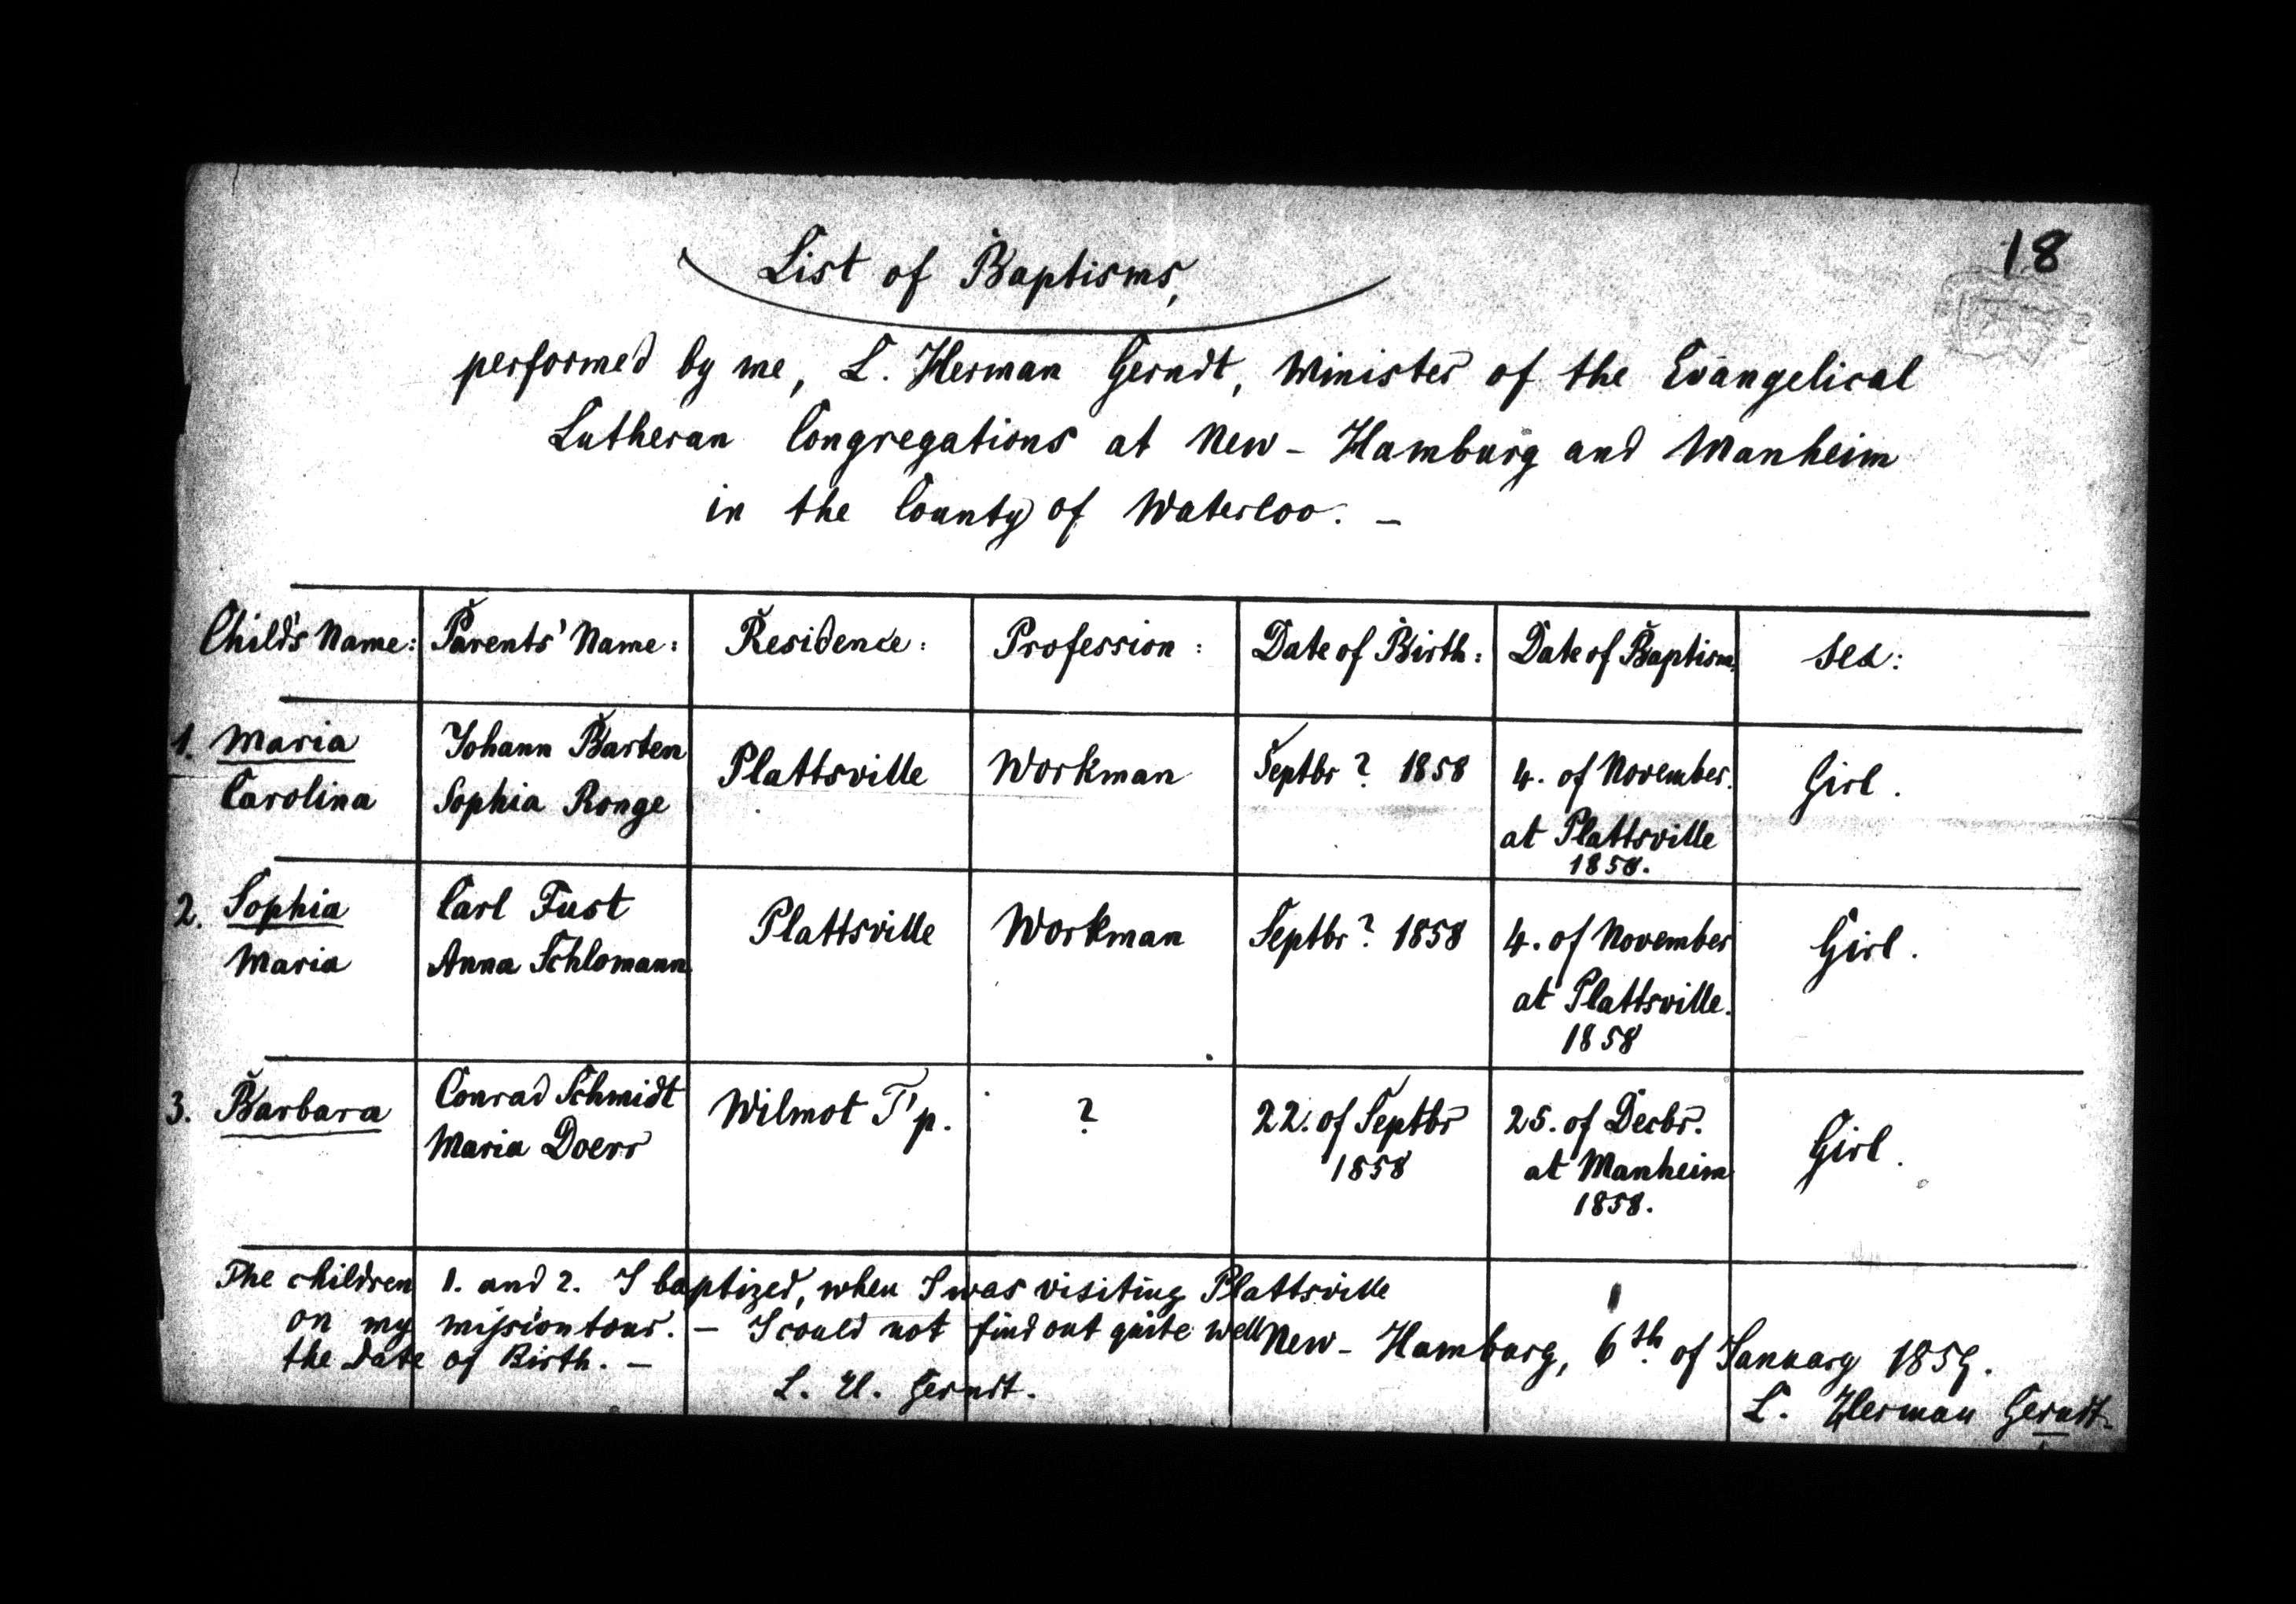 18
List of Baptisms,
performed by me, L. Herman Gerndt, Minister of the Evangelical
Lutheran Congregations at New-Hamburg and Manheim
in the County of Waterloo. -
Child's Name: Parents' Name: Residence: Profession: Date of Birth: Date of Baptism: Sex:
1. Maria Johann Barten Plattsville Workman Septbr ? 1858 4. of November. Girl.
Carolina Sophia Ronge at Plattsville
1858.
2. Sophia Carl Fust Plattsville Workman Septbr ? 1858 4. of November Girl.
Maria Anna Schlomann at Plattsville.
1858
3. Barbara Conrad Schmidt Wilmot T'p. ? 22. of Septbr 25. of Decbr. Girl.
Maria Doerr 1858 at Manheim
1858.
The children 1. and 2. I baptized, when I was visiting Plattsville
on my missiontour. - I could not find out quite well
the date of Birth. -
L. H. Gerndt.
New-Hamburg, 6th of January 1859.
L. Herman Gerndt.